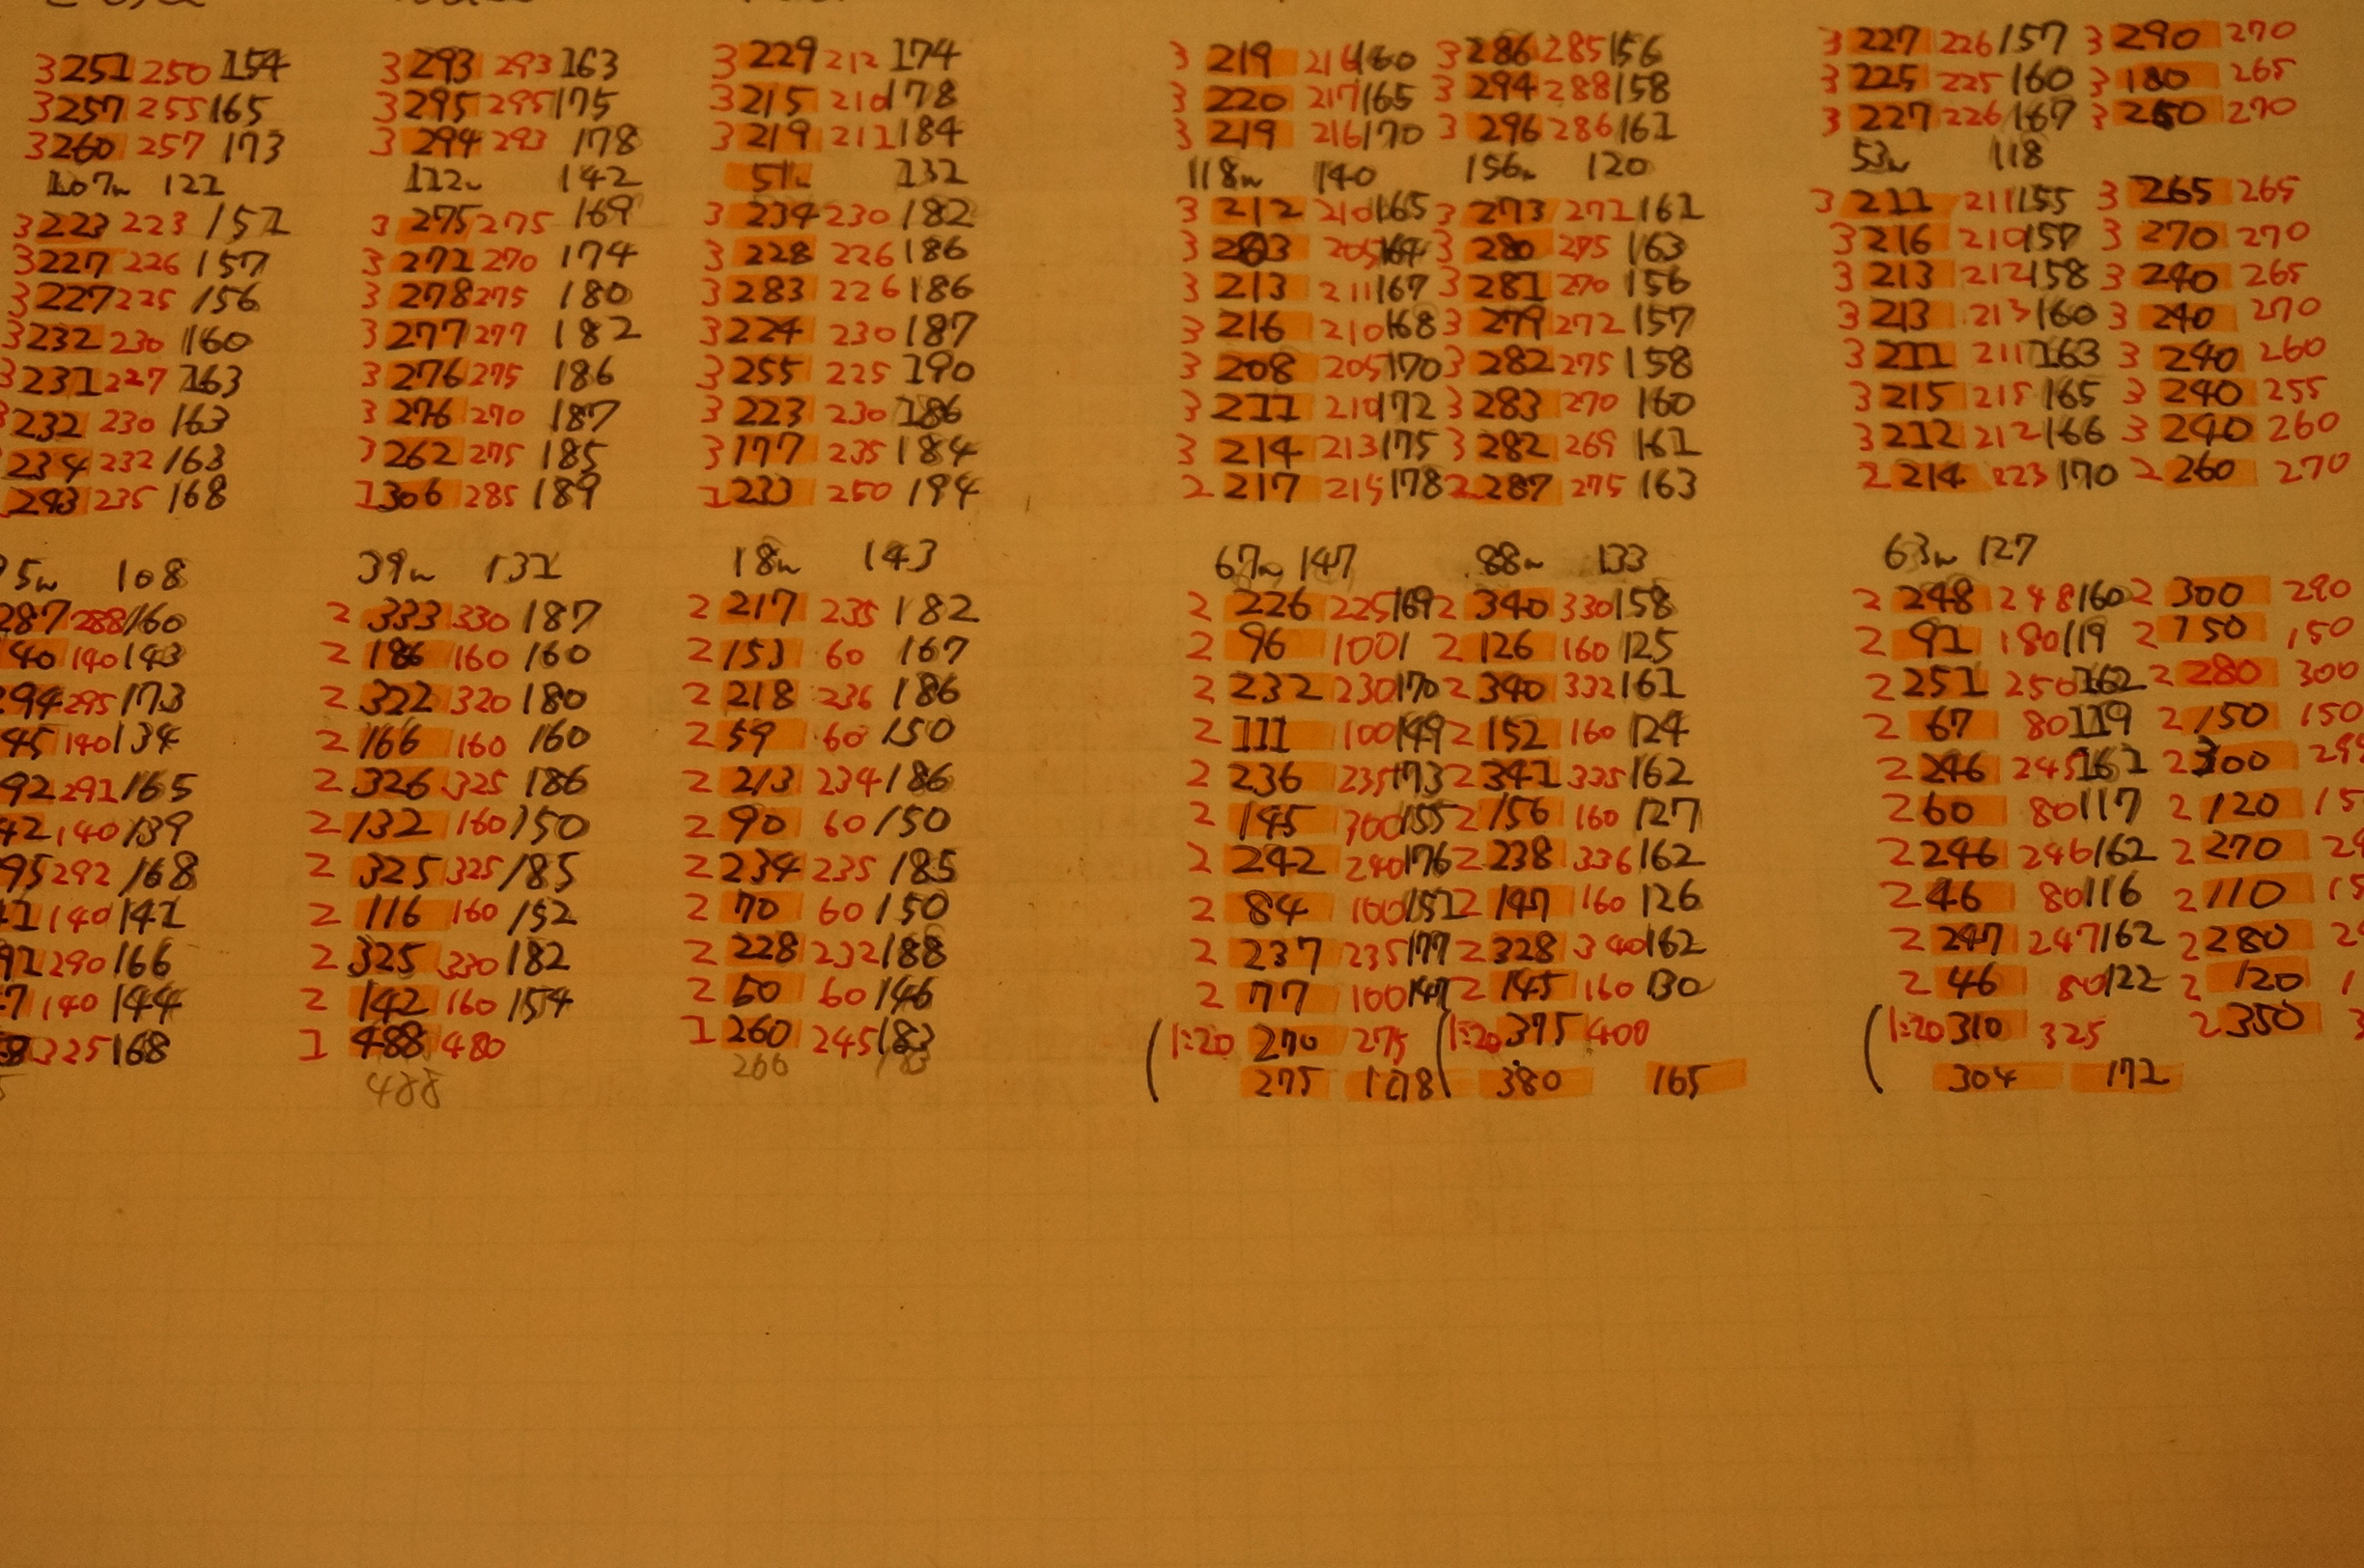 3 251 250 154 3 293 293 163 3 229 212 174 3 219 216 160 3 286 285 156 3 227 226 157 3 290 270
3 257 255 165 3 295 295 175 3 215 210 178 3 220 217 165 3 294 288 158 3 225 225 160 3 180 265
3 260 257 173 3 294 293 178 3 219 211 184 3 219 216 170 3 296 286 161 3 227 226 167 3 260 270
107w 121 112w 142 51w 132 118w 140 156w 120 53w 118
3 223 223 151 3 275 275 169 3 234 230 182 3 212 210 165 3 273 272 161 3 211 211 155 3 265 265
3 227 226 157 3 272 270 174 3 228 226 186 3 205 164 3 280 275 163 3 216 210 157 3 270 270
3 227 225 156 3 278 275 180 3 283 226 186 3 213 211 167 3 281 270 156 3 213 212 158 3 240 265
3 232 230 160 3 277 277 182 3 224 230 187 3 216 210 168 3 279 272 157 3 213 213 160 3 240 270
3 231 227 163 3 276 275 186 3 255 225 190 3 208 205 170 3 282 275 158 3 211 211 163 3 240 260
3 232 230 163 3 276 270 187 3 223 230 186 3 211 210 172 3 283 270 160 3 215 215 165 3 240 255
234 232 163 3 262 275 185 3 177 235 184 3 214 213 175 3 282 269 161 3 212 212 166 3 240 260
243 235 168 1 306 285 189 1 233 250 194 2 217 215 178 2 287 275 163 2 214 223 170 2 260 270
5w 108 39w 131 18w 143 67w 147 88w 133 63w 127
287 288 160 2 333 330 187 2 217 235 182 2 226 225 169 2 340 330 158 2 248 248 160 2 300 290
40 140 143 2 186 160 160 2 153 60 167 2 96 100 1 2 126 160 125 2 91 180 119 2 150 150
94 295 173 2 322 320 180 2 218 236 186 2 232 230 170 2 340 332 161 2 251 250 162 2 280 300
45 140 134 2 166 160 160 2 59 60 150 2 111 100 149 2 152 160 124 2 67 80 119 2 150 150
92 291 165 2 326 325 186 2 213 234 186 2 236 235 173 2 341 335 162 2 246 245 161 2 300 29
42 140 139 2 132 160 150 2 90 60 150 2 145 155 2 156 160 127 2 60 80 117 2 120 15
95 292 168 2 325 325 185 2 234 235 185 2 242 240 176 2 238 336 162 2 246 246 162 2 270 29
41 140 141 2 116 160 152 2 70 60 150 2 84 100 151 2 147 160 126 2 46 80 116 2 110 15
91 290 166 2 325 330 182 2 228 232 188 2 237 235 177 2 328 340 162 2 247 247 162 2 280 2
7 140 144 2 142 160 154 2 60 60 146 2 77 100 147 2 145 160 130 2 46 80 122 2 120 1
8 325 168 1 488 480 1 260 245 183 (1:20 270 275 (1:20 375 400 (1:20 310 325 2 350 3
488 266 183 275 178 380 165 304 172